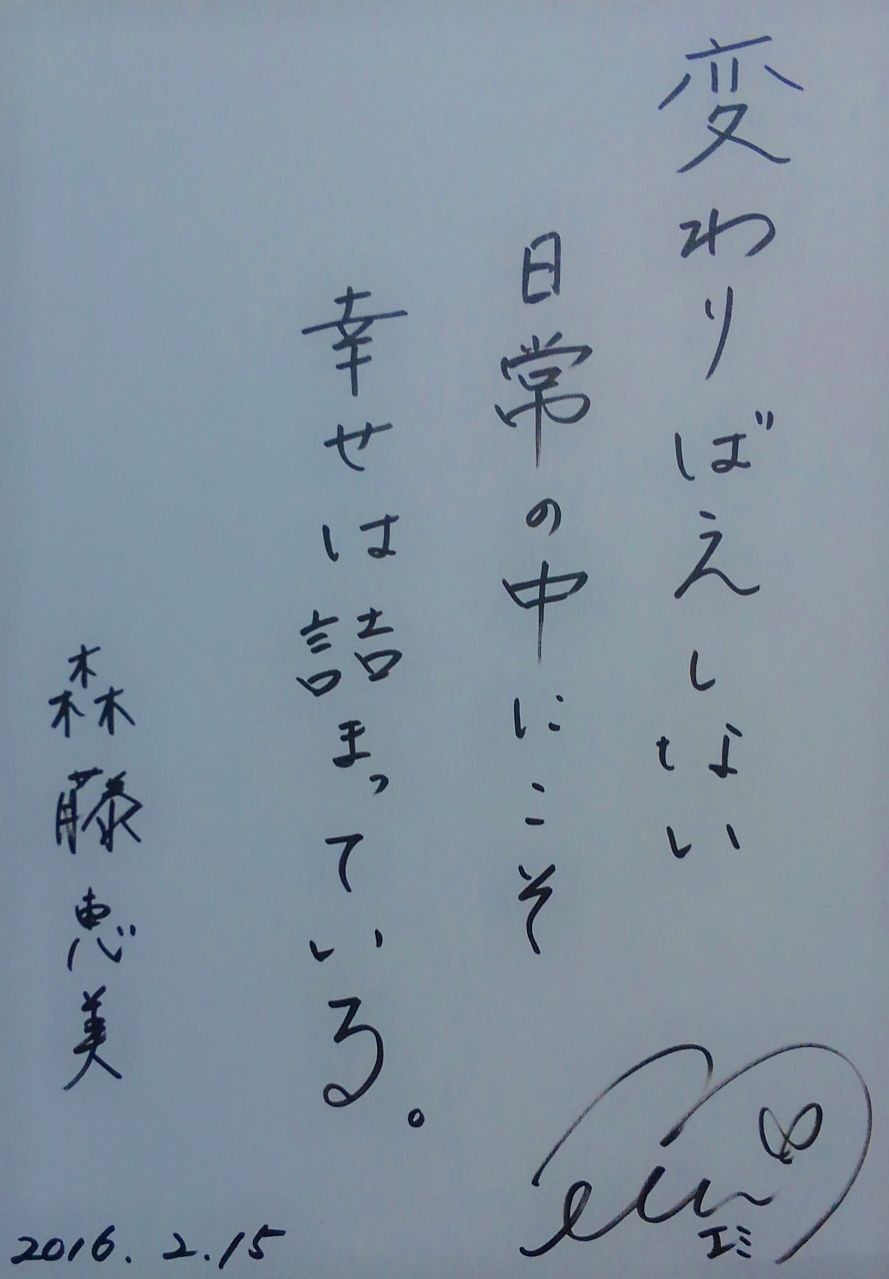 変わりばえしない
日常の中にこそ
幸せは詰まっている。
森藤恵美
2016.2.15
emi
エミ